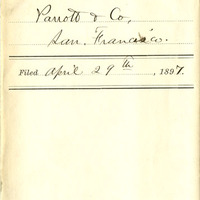 Parrott & Co,
San. Francisco.
Filed April 29th, 1897.